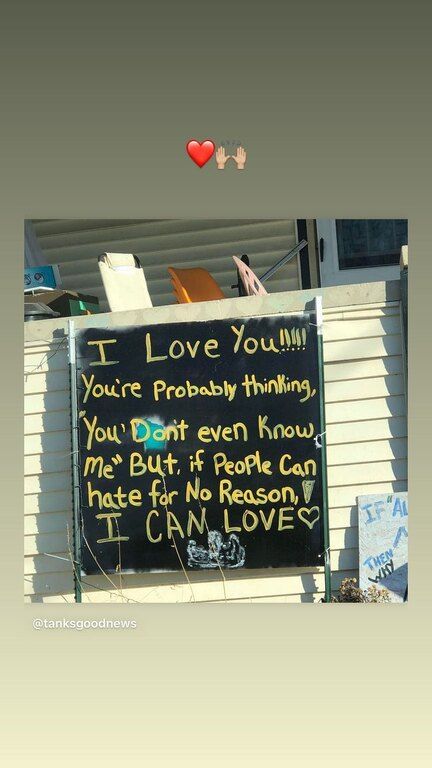 I Love You!!!!!
You're Probably thinking,
"You' Don't even Know
me" But, if People Can
hate for No Reason,
I CAN LOVE♡
IF "AL
THEN
WHY
@tanksgoodnews